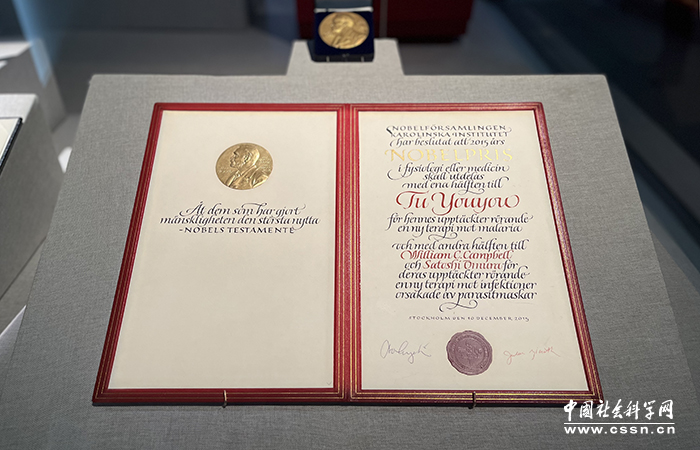 Åt dem som har gjort
mänskligheten den största nytta
-NOBELS TESTAMENTE
NOBELFÖRSAMLINGEN
KAROLINSKA INSTITUTET
har beslutat att 2015 års
NOBELPRIS
i fysiologi eller medicin
skall utdelas
med ena hälften till
Tu Youyou
för hennes upptäckter rörande
en ny terapi mot malaria
och med andra hälften till
William C. Campbell
och Satoshi Ōmura för
deras upptäckter rörande
en ny terapi mot infektioner
orsakade av parasitmaskar
STOCKHOLM DEN 10 DECEMBER 2015
中国社会科学网
www.cssn.cn